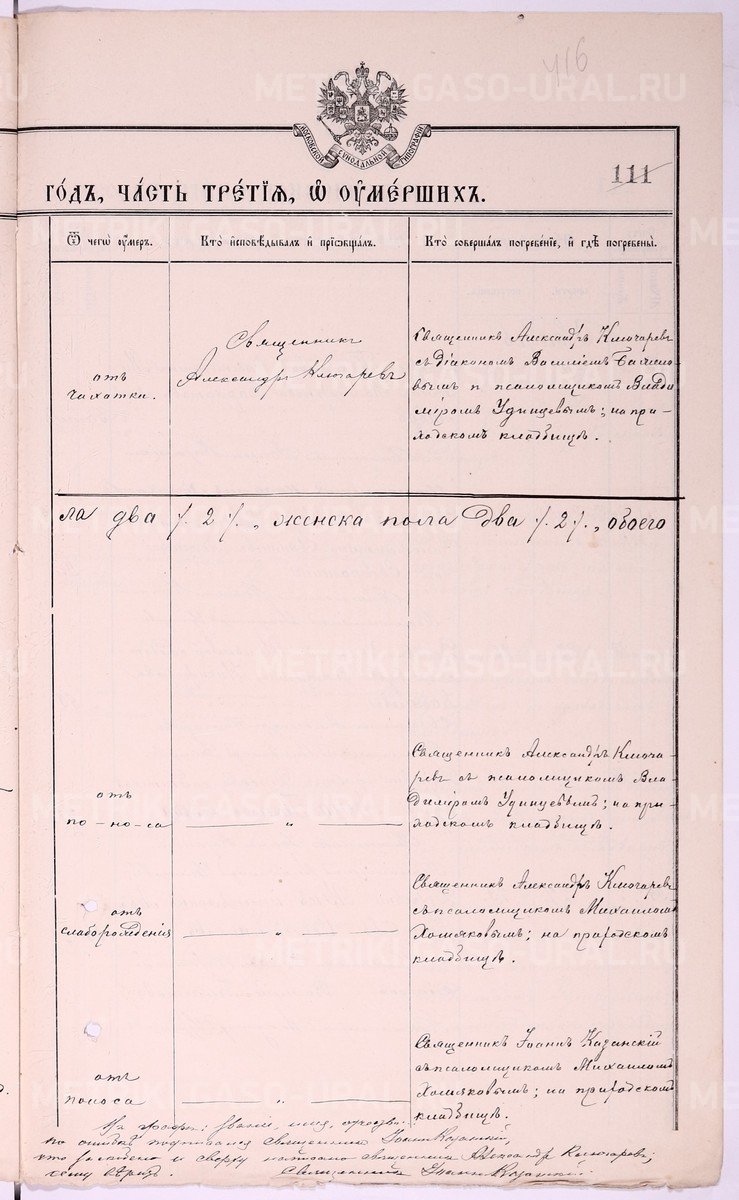 416
METRIKI.GASO-URAL.RU
МОСКОВСКОЙ СѴНОДАЛЬНОЙ ТИПОГРАФІИ
111
ГО́ДЪ, ЧА́СТЬ ТРЕ́ТІѦ, Ѽ ОУ҆МЕ́РШИХЪ.
Ѿ чегѡ̀ оу҆́меръ.
Кто̀ и҆сповѣ́дывалъ и҆ прїѡбща́лъ.
Кто̀ соверша́лъ погребе́нїе, и҆ гдѣ̀ погребены̀.
отъ
чахатки.
Священникъ
Александръ Ключаревъ
Священникъ Александръ Ключаревъ
съ діакономъ Василіемъ
вымъ и псаломщикомъ Влади
міромъ Удинцевымъ; на при-
ходскомъ кладбищѣ.
ла два /. 2 /. , женска пола два /. 2 /. , обоего
METRIKI.GASO-URAL.RU
отъ
по-но-са
— „ —
Священникъ Александръ Ключа-
ревъ съ псаломщикомъ Вла-
диміромъ Удинцевымъ; на при-
ходскомъ кладбищѣ.
отъ
слаборожденія
— „ —
Священникъ Александръ Ключаревъ
съ псаломщикомъ Михаиломъ
Хомяковымъ; на приходскомъ
кладбищѣ.
отъ
поноса
— „ —
Священникъ Іоаннъ Казанскій
съ псаломщикомъ Михаиломъ
Хомяковымъ; на приходскомъ
кладбищѣ.
На графѣ: званіе, имя, отчество
по ошибкѣ подписался священникъ Іоаннъ Казанскій,
что и сверху написано священникъ Александръ Ключаревъ;
сему вѣрить. Священникъ Іоаннъ Казанскій.